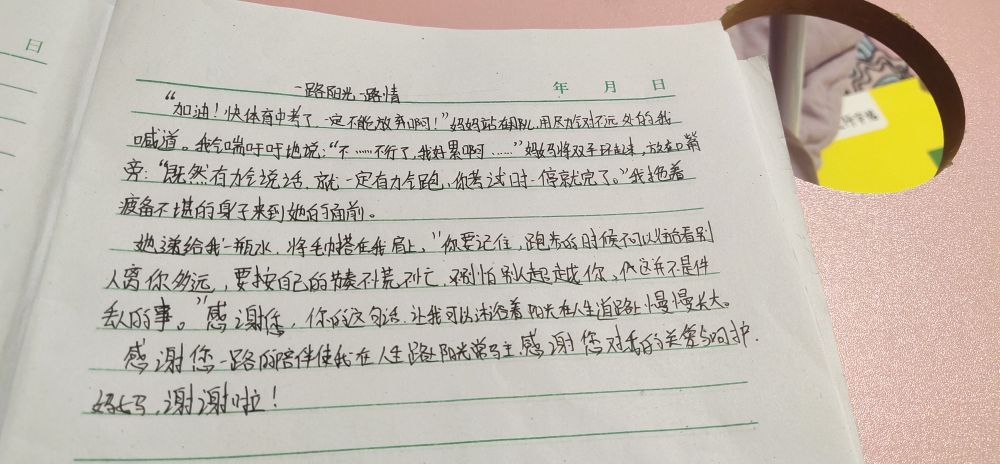 日
年 月 日
一路阳光一路情
“加油！快体育中考了，一定不能放弃啊！”妈妈站在用尽力气对不远处的我
喊道。我气喘吁吁地说：“不……不行了，我好累啊……”妈妈将双手放在嘴
旁：“既然有力气说话，就一定有力气跑，你考试时一停就完了。”我拖着
疲备不堪的身子来到她的面前。
她递给我一瓶水，将毛巾搭在我肩上，“你要记住，跑步的时候不可以看别
人离你多远，要按自己的节奏不慌不忙，别怕别人超越你，这并不是件
丢人的事。”感谢您，你的这句话，让我可以沐浴着阳光在人生道路上慢慢长大。
感谢您一路的陪伴使我在人生路上阳光常驻，感谢您对我的关爱与呵护。
妈妈，谢谢啦！